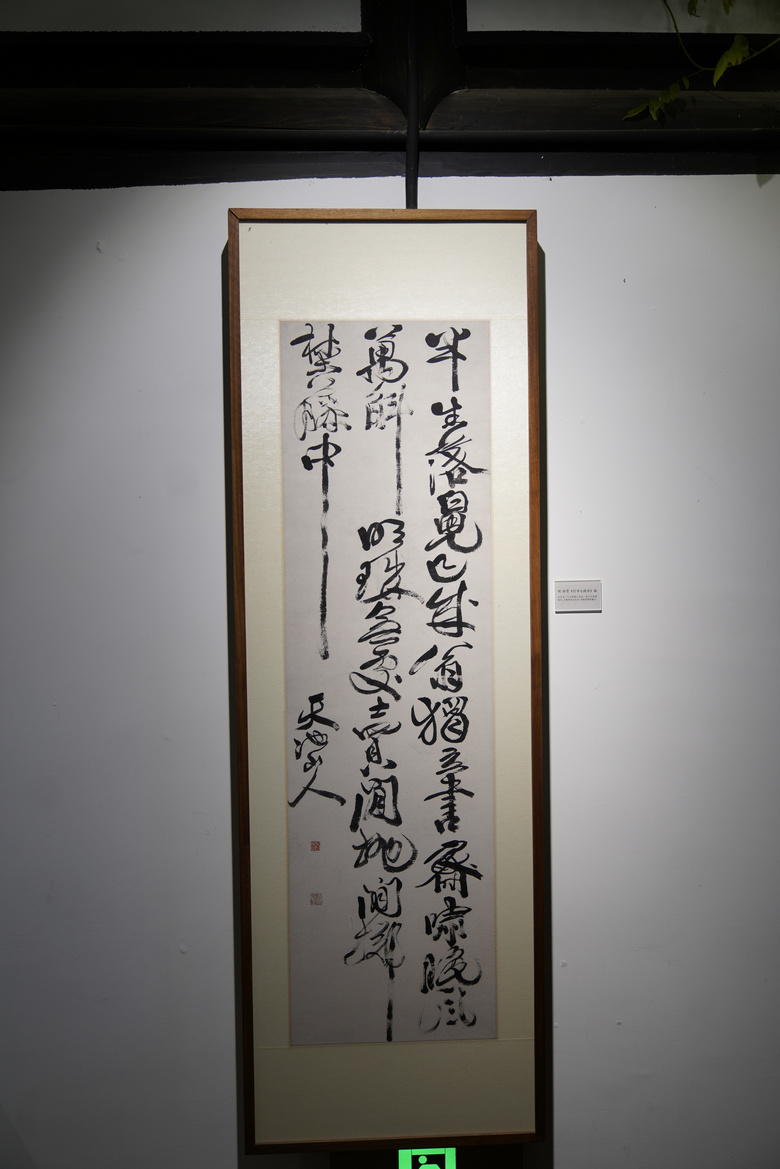 半生落魄已成翁獨立書齋嘯晚風
萬斛明珠無處賣閒拋閒擲
埜藤中
天池山人